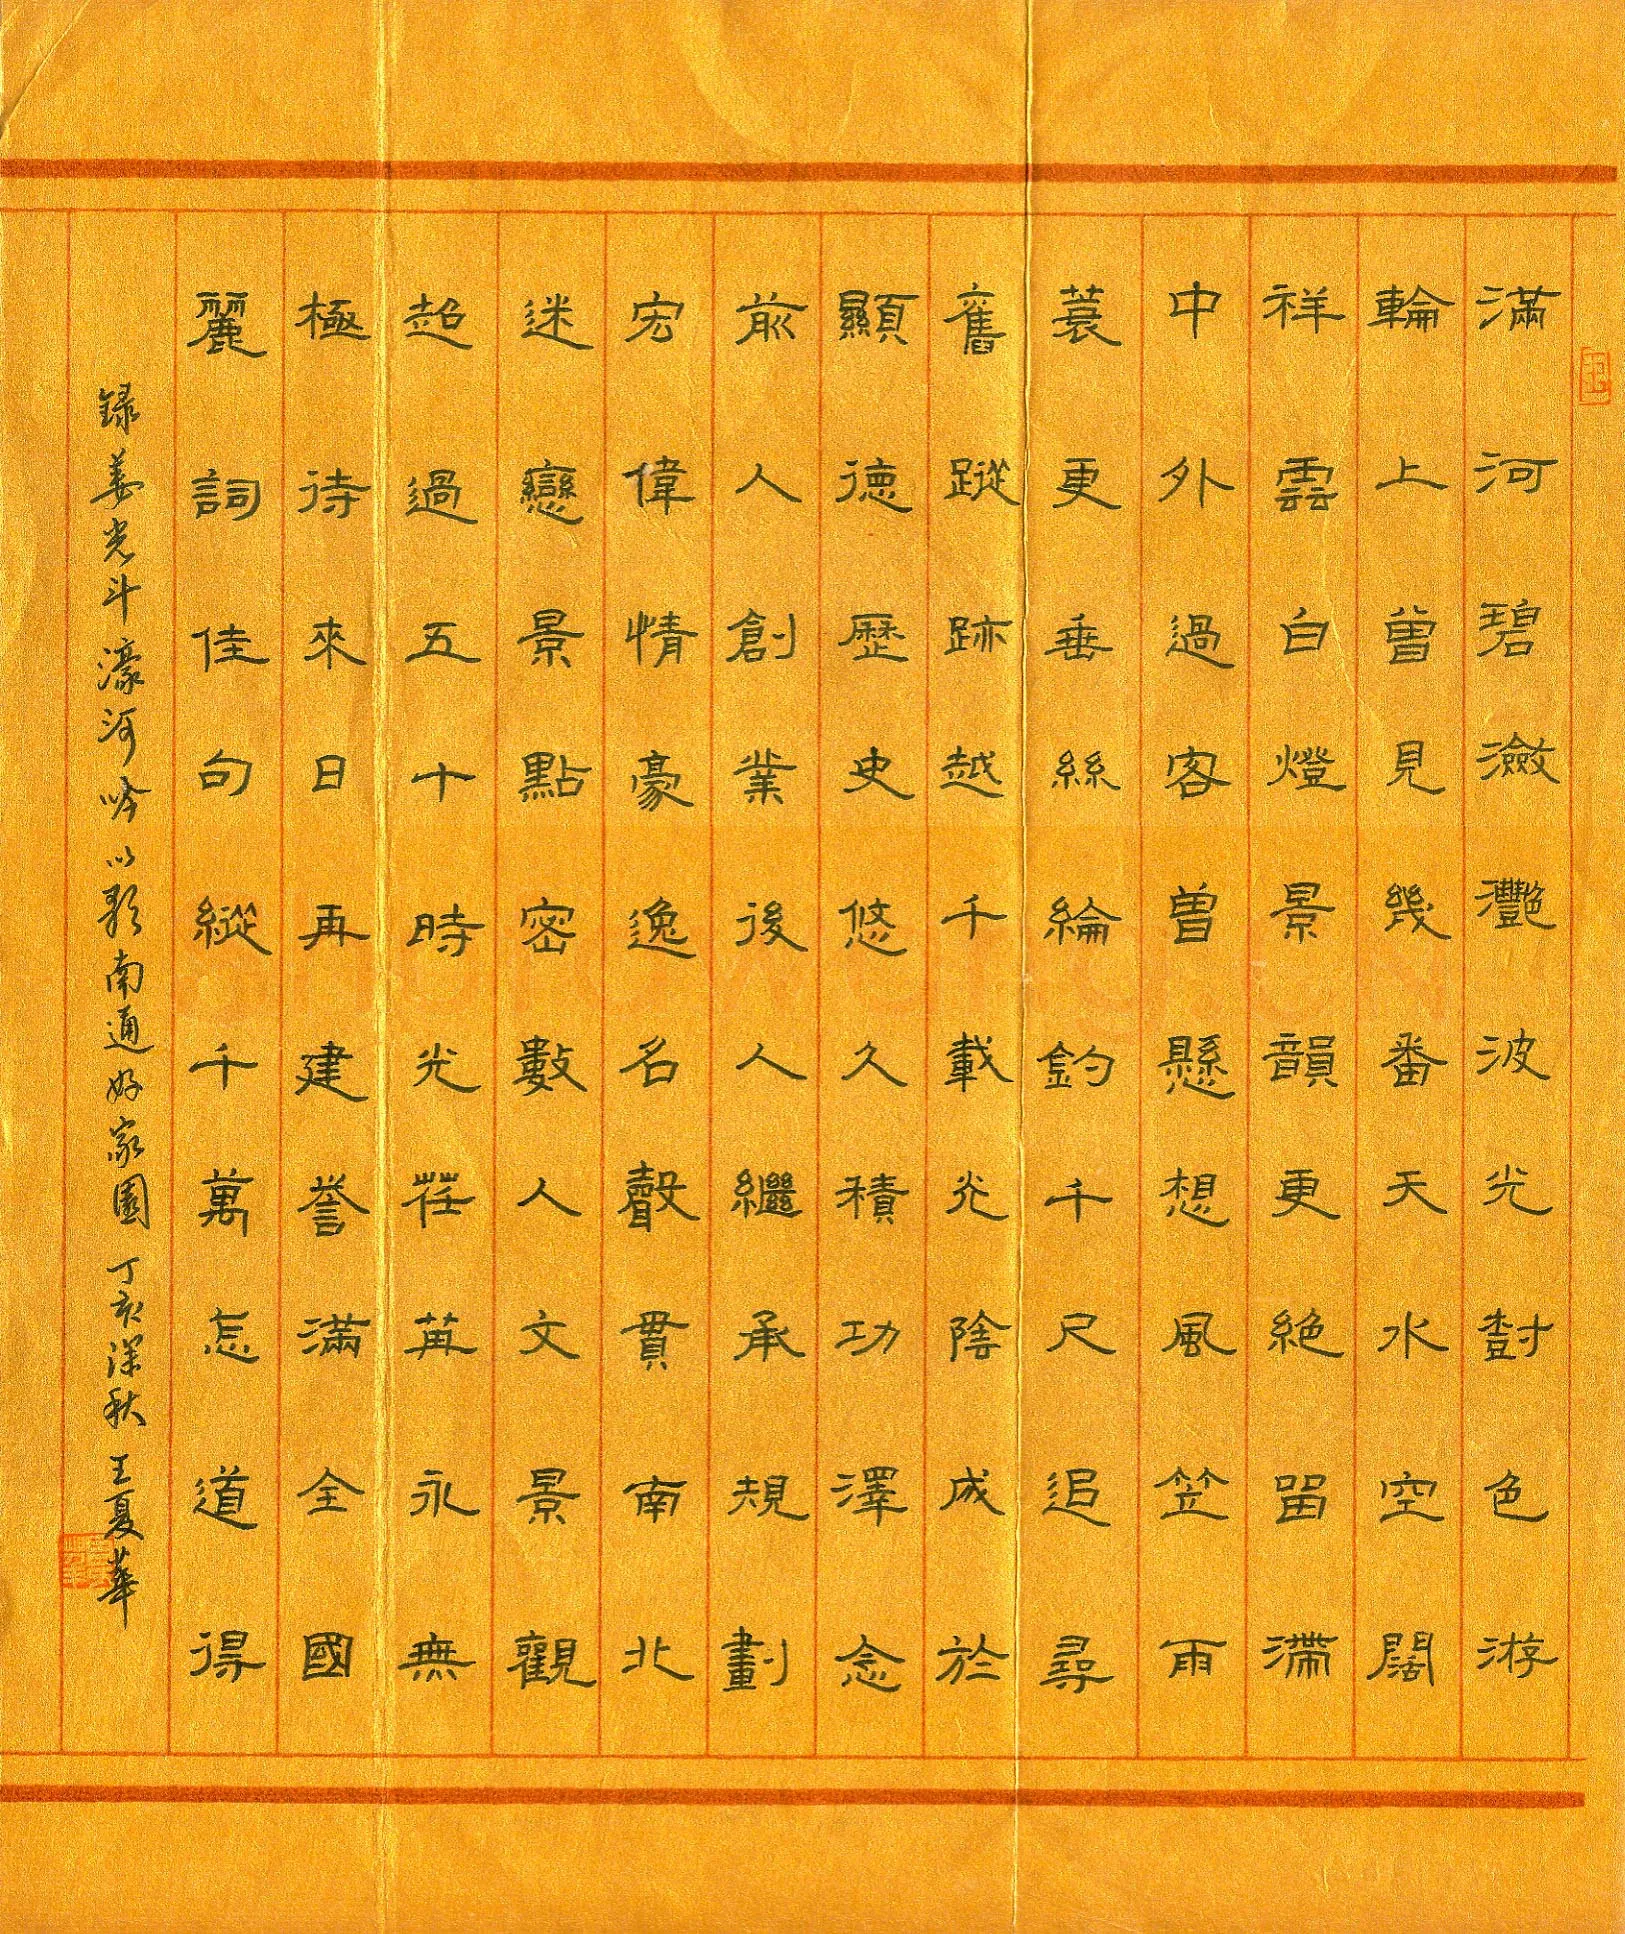 滿河碧瀲灩波光對色游
輪上曾見幾番天水空闊
祥雲白燈景韻更絕留滯
中外過客曾懸想風笠雨
蓑更垂絲綸釣千尺追尋
舊蹤跡越千載光陰成於
顯德歷史悠久積功澤念
前人創業後人繼承規劃
宏偉情豪逸名聲貫南北
迷戀景點密數人文景觀
超過五十時光荏苒永無
極待來日再建譽滿全國
麗詞佳句縱千萬怎道得
録姜光斗濠河吟以歌南通好家園 丁亥深秋 王夏華